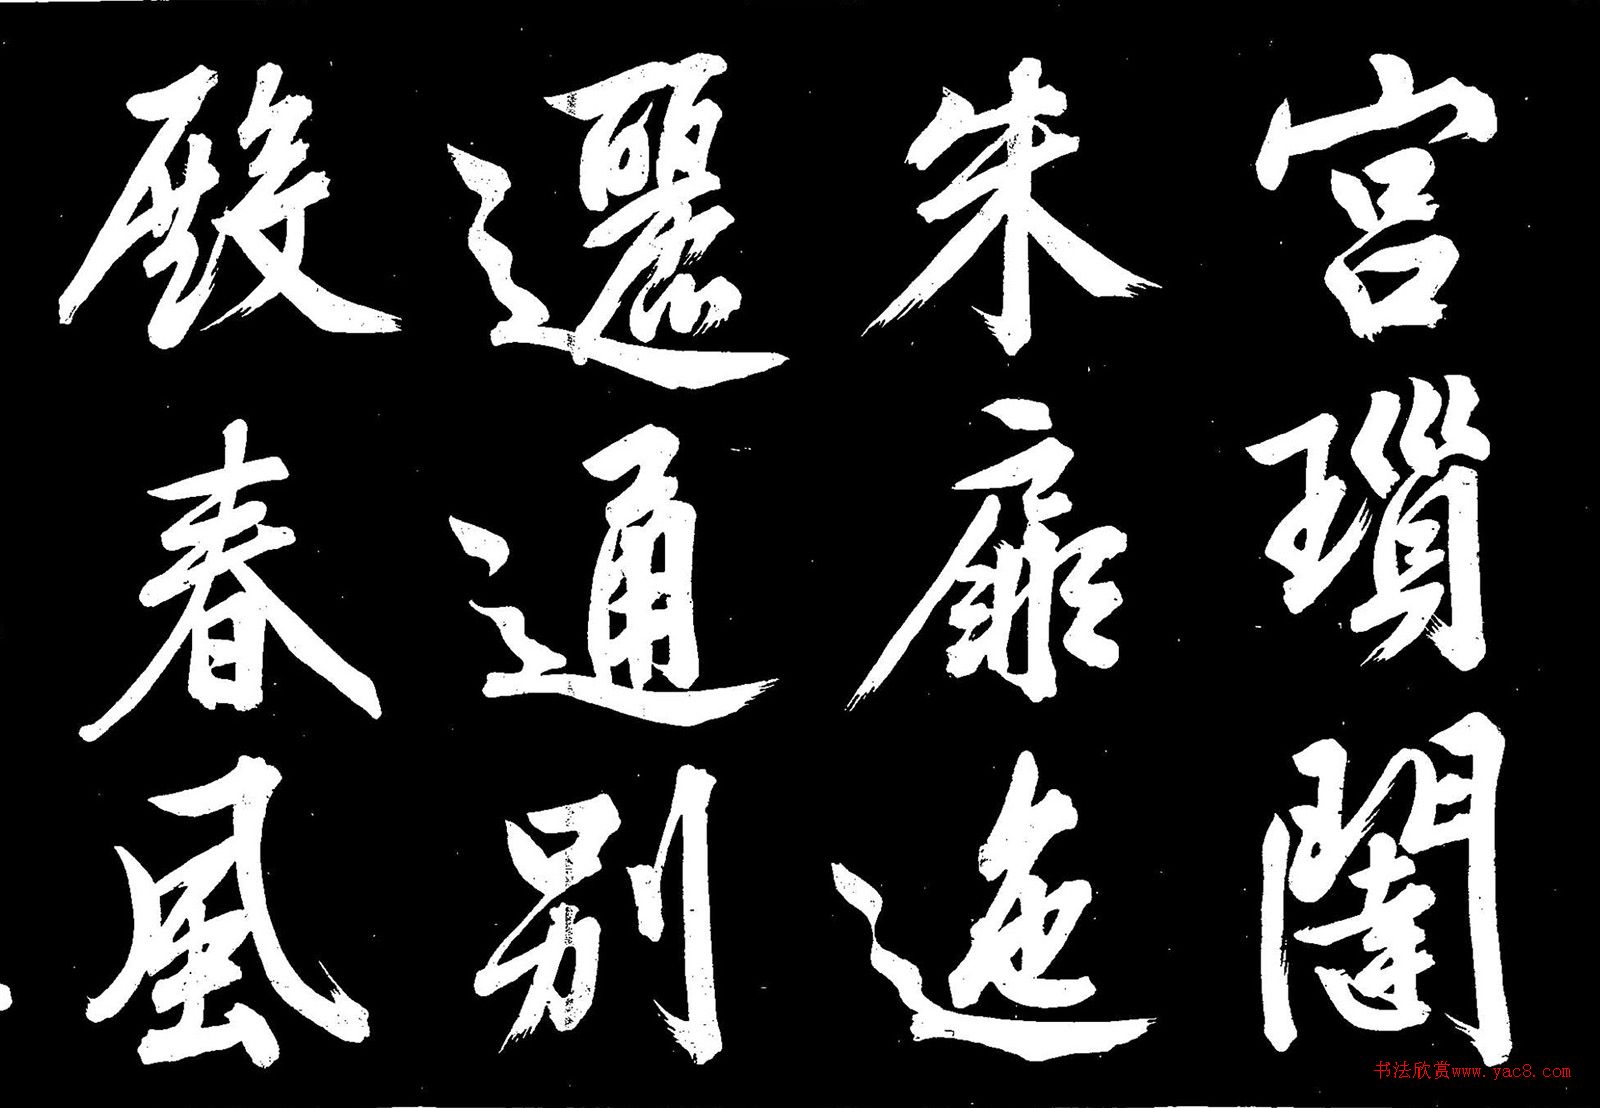 宮瑣闥
朱扉迤
邐通別
殿春風
书法欣赏www.yac8.com